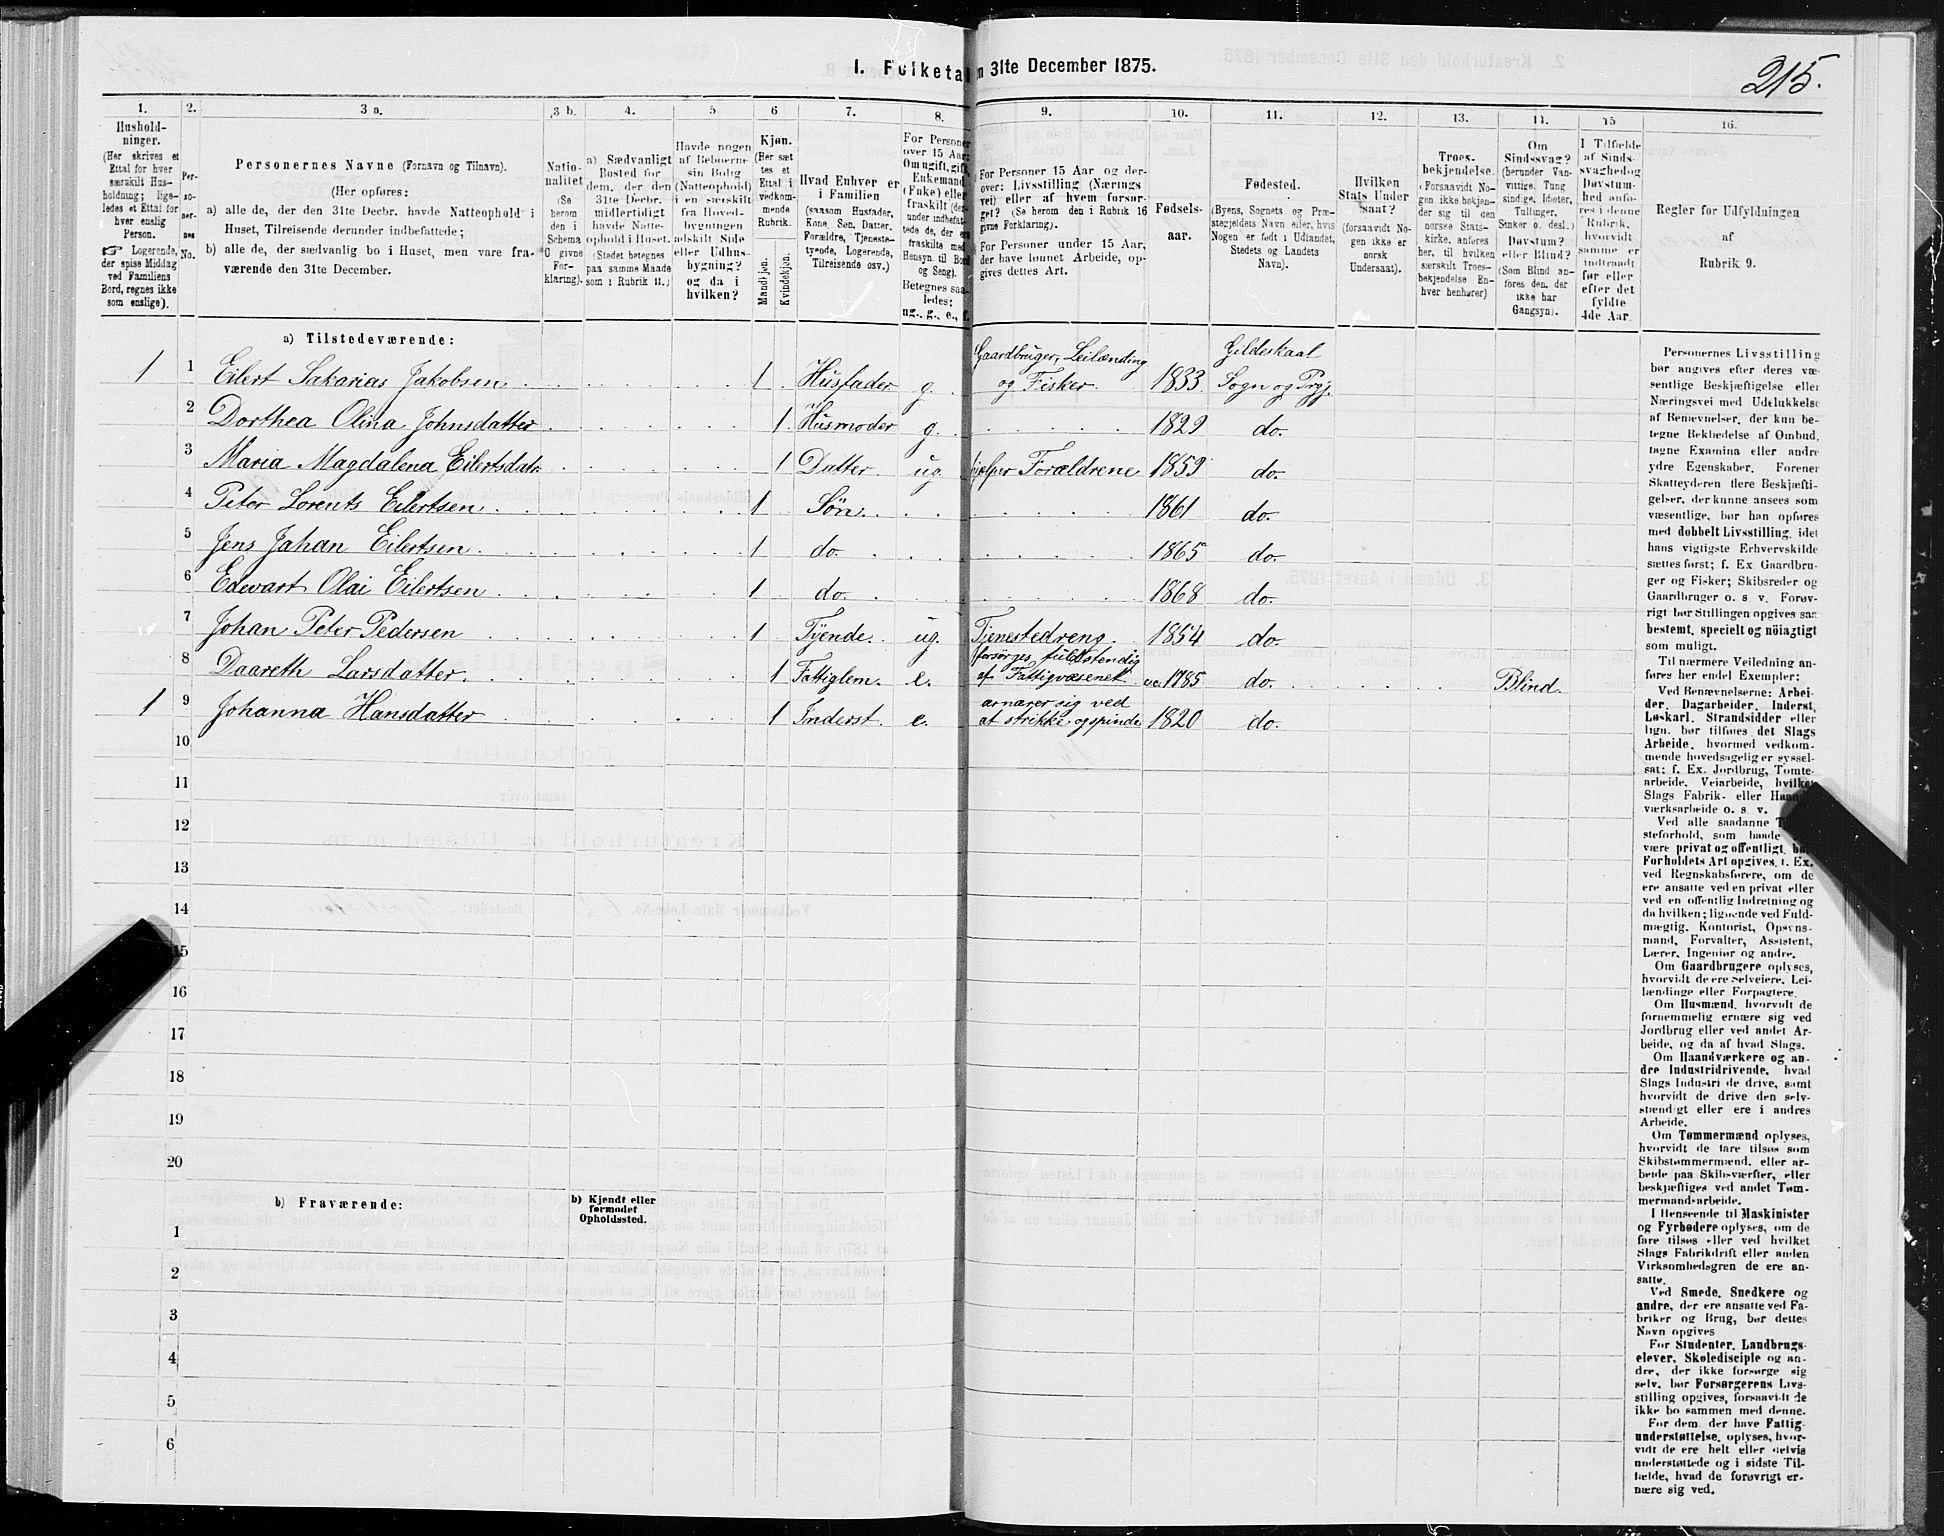 215.
1. Folketa n 31te December 1875.
1. 2. 3 a. 3 b. 4. 5 6 7. 8. 9. 10. 11. 12. 13. 14. 15 16.
Hushold-
ninger.
(Her skrives et
Ettal for hver
særskilt Hus-
holdning; lige-
ledes et Ettal for
hver enslig
Person.
☞ Logerende,
der spise Middag
ved Familiens
Bord, regnes ikke
som enslige).
Per-
so-
ner-
nes
No.
Personernes Navne (Fornavn og Tilnavn).
(Her opføres:
a) alle de, der den 31te Decbr. havde Natteophold i
Huset, Tilreisende derunder indbefattede;
b) alle de, der sædvanlig bo i Huset, men vare fra-
værende den 31te December.
Natio-
nalitet
(Se
herom
den i
Schema
0 givne
For-
klaring).
a) Sædvanligt
Bosted for
dem, der den
31te Decbr.
midlertidigt
havde Natte-
ophold i Huset.
(Stedet betegnes
paa samme Maade
som i Rubrik 11.)
Havde nogen
af Beboerne
sin Bolig
(Natteophold)
i en særskilt
fra Hoved-
bygningen
adskilt Side
eller Udhus-
bygning?
og da i
hvilken?
Kjøn.
(Her sæt
tes et
Ettal i
vedkom-
mende
Rubrik.
Mandkjøn.
Kvindekjøn.
Hvad Enhver er
i Familien
(saasom Husfader,
Kone, Søn, Datter,
Forældre, Tjeneste-
tyende, Logerende,
Tilreisende osv.)
For Personer
over 15 Aar:
Om ugift, gift,
Enkemand
(Enke) eller
fraskilt (der-
under indbefat-
tede de, der ere
fraskilte med
Hensyn til Bord
og Seng).
Betegnes saa-
ledes:
ug., g., e., f.
For Personer 15 Aar og der-
over: Livsstilling (Nærings
vei) eller af hvem forsør-
get? (Se herom den i Rubrik 16
givne Forklaring).
For Personer under 15 Aar,
der have lønnet Arbeide, op-
gives dettes Art.
Fødsels-
aar.
Fødested.
(Byens, Sognets og Præ-
stegjeldets Navn eller, hvis
Nogen er født i Udlandet,
Stedets og Landets
Navn).
Hvilken
Stats Under
saat?
(forsaavidt No-
gen ikke er
norsk
Undersaat).
Troes-
bekjendelse.
(Forsaavidt No-
gen ikke bekjen-
der sig til den
norske Stats-
kirke, anføres
her, til hvilken
særskilt Troes-
bekjendelse En-
hver henhører)
Om
Sindssvag?
(herunder Van-
vittige, Tung
sindige, Idioter,
Tullinger,
Sinker o. desl.)
Døvstum?
eller Blind?
(Som Blind an-
føres den, der
ikke har
Gangsyn).
I Tilfælde
af Sinds-
svaghed og
Døvstum-
hed anfø-
res i denne
Rubrik,
hvorvidt
samme er
indtraadt
før eller
efter det
fyldte
4de Aar.
Regler for Udfyldningen
af
Rubrik 9.
a) Tilstedeværende:
1 1 Eilert Sakarias Jakobsen 1 Husfader g. Gaardbruger, Leilænding og Fisker 1833 Gildeskaal Sogn og Prgj.
2 Dorthea Olina Johnsdatter 1 Husmoder g. 1829 do.
3 Maria Magdalena Eilertsdatr 1 Datter ug. hjelper Forældrene 1859 do.
4 Peter Lorents Eilertsen 1 Søn 1861 do.
5 Jens Johan Eilertsen 1 do. 1865 do.
6 Edevart Olai Eilertsen 1 do. 1868 do.
7 Johan Peter Pedersen 1 Tyende ug. Tjenestedreng. 1854 do.
8 Daareth Larsdatter 1 Fattiglem. e. forsørges fuldstendig af Fattigvæsenet ca. 1785 do. Blind.
1 9 Johanna Hansdatter 1 Inderst e. ærnærer sig ved at strikke og spinde 1820 do.
10
11
12
13
14
15
16
17
18
19
20
b) Fraværende: b) Kjendt eller
formodet
Opholdssted.
1
2
3
4
5
6
Personernes Livsstilling
bør angives efter deres væ-
sentlige Beskjæftigelse eller
Næringsvei med Udelukkelse
af Benævnelser, der kun be-
tegne Beklædelse af Ombud,
tagne Examina eller andre
ydre Egenskaber. Forener
Skatteyderen flere Beskjæfti-
gelser, der kunne ansees som
væsentlige, bør han opføres
med dobbelt Livsstilling, idet
hans vigtigste Erhvervskilde
sættes først; f. Ex Gaardbru-
ger og Fisker; Skibsreder og
Gaardbruger o. s v. Forøv-
rigt bør Stillingen opgives saa
bestemt, specielt og nöiagtigt
som muligt.
Til nærmere Veiledning an-
føres her endel Exempler:
Ved Benævnelserne: Arbei-
der, Dagarbeider, Inderst,
Løskarl, Strandsidder eller
lign. bør tilføies det Slags
Arbeide, hvormed vedkom-
mende hovedsagelig er syssel-
sat; f. Ex. Jordbrug, Tomte-
arbeide, Veiarbeide, hvilket
Slags Fabrik- eller Haand-
værksarbeide o. s. v.
Ved alle saadanne
steforhold, som baade
være privat og offentligt, bør
Forholdets Art opgives, f. Ex.
ved Regnskabsførere, om de
ere ansatte ved en privat eller
ved en offentlig Indretning og
da hvilken; lignende ved Fuld-
mægtig, Kontorist, Opsyns-
mand, Forvalter, Assistent,
Lærer, Ingeniør og andre.
Om Gaardbrugere oplyses,
hvorvidt de ere Selveiere, Lei-
lændinge eller Forpagtere.
Om Husmænd, hvorvidt de
fornemmelig ernære sig ved
Jordbrug eller ved andet Ar-
beide, og da af hvad Slags.
Om Haandværkere og an-
dre Industridrivende, hvad
Slags Industri de drive, samt
hvorvidt de drive den selv-
stændigt eller ere i andres
Arbeide.
Om Tømmermænd oplyses,
hvorvidt de fare tilsøs som
Skibstømmermænd, eller ar-
beide paa Skibsværfter, eller
beskjæftiges ved andet Tøm-
mermandsarbeide.
I Henseende til Maskinister
og Fyrbødere oplyses, om de
fare tilsøs eller ved hvilket
Slags Fabrikdrift eller anden
Virksomhedsgren de ere an-
satte.
Ved Smede, Snedkere og
andre, der ere ansatte ved Fa-
briker og Brug, bør dettes
Navn opgives
For Studenter, Landbrugs-
elever, Skoledisciple og an-
dre, der ikke forsørge sig
selv, bør Forsørgerens Livs-
stilling opgives, forsaavidt de
ikke bo sammen med denne.
For dem, der have Fattig-
understøttelse, oplyses, hvor-
vidt de ere helt eller delvis
understøttede og i sidste Til-
fælde, hvad de forøvrigt er-
nære sig ved.